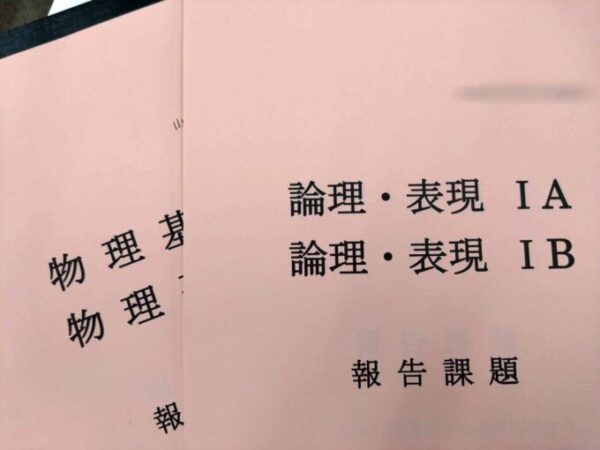 山
物理基
物理
報
論理・表現 ⅠA
論理・表現 ⅠB
報告課題